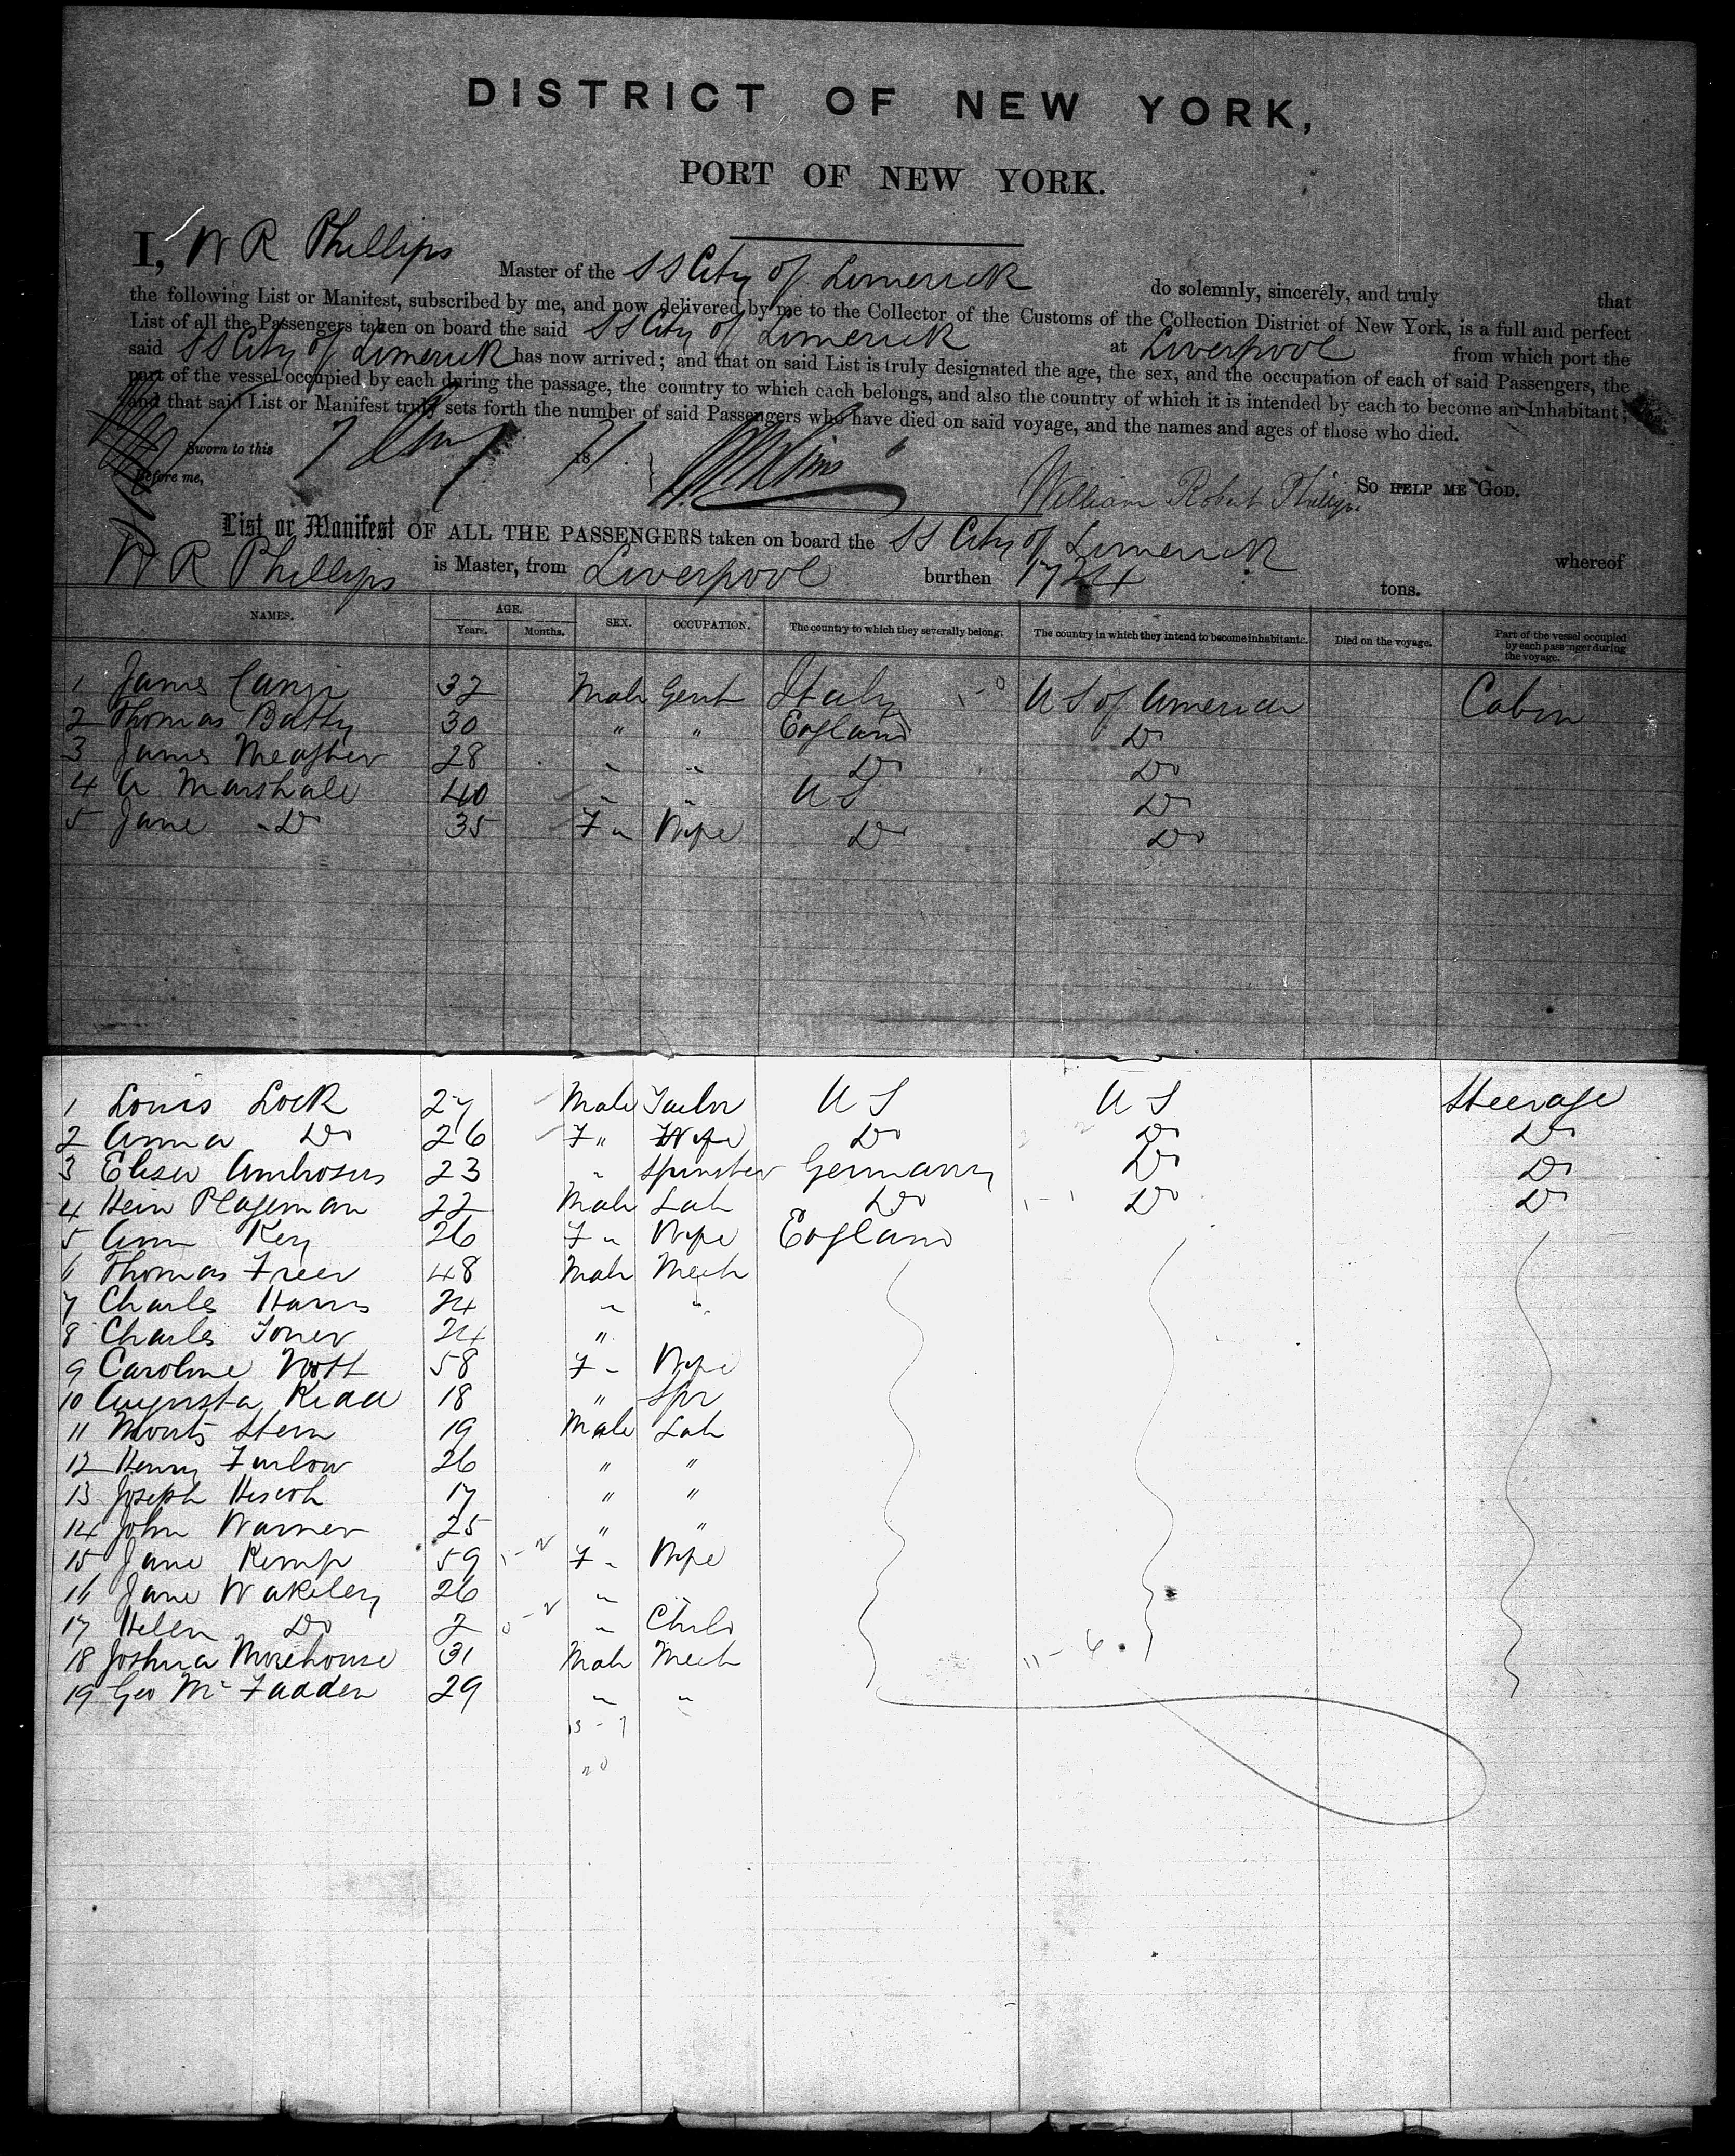 DISTRICT OF NEW YORK,
PORT OF NEW YORK.
I, W R Phillips Master of the SS City of Limerick do solemnly, sincerely, and truly that
the following List or Manifest, subscribed by me, and now delivered by me to the Collector of the Customs of the Collection District of New York, is a full and perfect
List of all the Passengers taken on board the said SS City of Limerick at Liverpool from which port the
said SS City of Limerick has now arrived; and that on said List is truly designated the age, the sex, and the occupation of each of said Passengers, the
part of the vessel occupied by each during the passage, the country to which each belongs, and also the country of which it is intended by each to become an Inhabitant;
and that said List or Manifest truly sets forth the number of said Passengers who have died on said voyage, and the names and ages of those who died.
Sworn to this 7 1871
Before me, William Robert Phillips. So HELP ME GOD.
List or Manifest OF ALL THE PASSENGERS taken on board the SS City of Limerick whereof
W R Phillips is Master, from Liverpool burthen 1724 tons.
NAMES. AGE. Years. Months. SEX. OCCUPATION. The country to which they severally belong. The country in which they intend to become inhabitants. Died on the voyage. Part of the vessel occupied by each passenger during the voyage.
1 James 32 Male Gent Italy U S of America Cabin
2 Thomas Batty 30 " " England Do
3 James Meagher 28 " " Do Do
4 A Marshall 40 " " U S Do
5 Jane Do 35 F " Wife Do Do
1 Louis Lock 27 Male Tailor U S U S Steerage
2 Anna Do 26 F " Wife Do Do Do
3 Elise Ambrosus 23 " Spinster Germany Do Do
4 Hein Plageman 22 Male Lab Do Do Do
5 Ann Key 26 F " Wife England
6 Thomas Freer 48 Male Mech
7 Charles Harris 24 " "
8 Charles Toner 24 "
9 Caroline Nott 58 F " Wife
10 Augusta Kidd 18 " Spr
11 Morits Stern 19 Male Lab
12 Henry Furlow 26 " "
13 Joseph 17 " "
14 John Warner 25 " "
15 Jane Kemp 59 F " Wife
16 Jane Wakeley 26 " "
17 Helen Do 2 " Child
18 Joshua Morehouse 31 Male Mech
19 Geo McFadden 29 " "